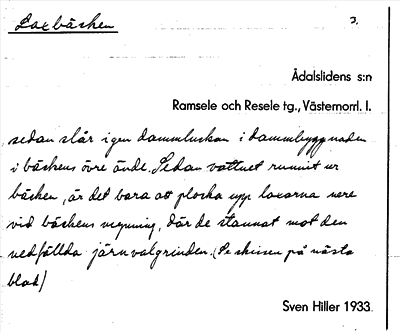 Laxbäcken 2.
Ådalslidens s:n
Ramsele och Resele tg., Västernorrl. l.
sedan slår igen dammluckan i dammbyggnaden
i bäckens övre ände. Sedan vattnet runnit ur
bäcken, är det bara att plocka upp laxarna nere
vid bäckens mynning, där de stannat mot den
nedfällda järnvalgrinden. (Se skissen på nästa
blad)
Sven Hiller 1933.